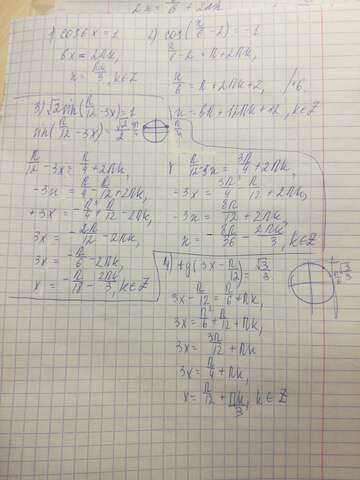 2x = π/6 + 2πk
1) cos 6x = 1
6x = 2πk,
x = πk/3, k∈Z
2) cos(x/6 - 2) = -1
x/6 - 2 = π + 2πk,
x/6 = π + 2πk + 2, /·6
x = 6π + 12πk + 12, k∈Z
3) √2 sin(π/12 - 3x) = 1
sin(π/12 - 3x) = √2/2
π/4
π/12 - 3x = π/4 + 2πk
-3x = π/4 - π/12 + 2πk,
+3x = -π/4 + π/12 - 2πk,
3x = -2π/12 - 2πk,
3x = -π/6 - 2πk,
x = -π/18 - 2πk/3, k∈Z
π/12 - 3x = 3π/4 + 2πk,
-3x = 3π/4 - π/12 + 2πk,
-3x = 8π/12 + 2πk,
x = -8π/36 - 2πk/3, k∈Z
4) tg(3x - π/12) = √3/3
3x - π/12 = π/6 + πk,
3x = π/6 + π/12 + πk,
3x = 3π/12 + πk,
3x = π/4 + πk,
x = π/12 + πk/3, k∈Z
√3/3
π/6